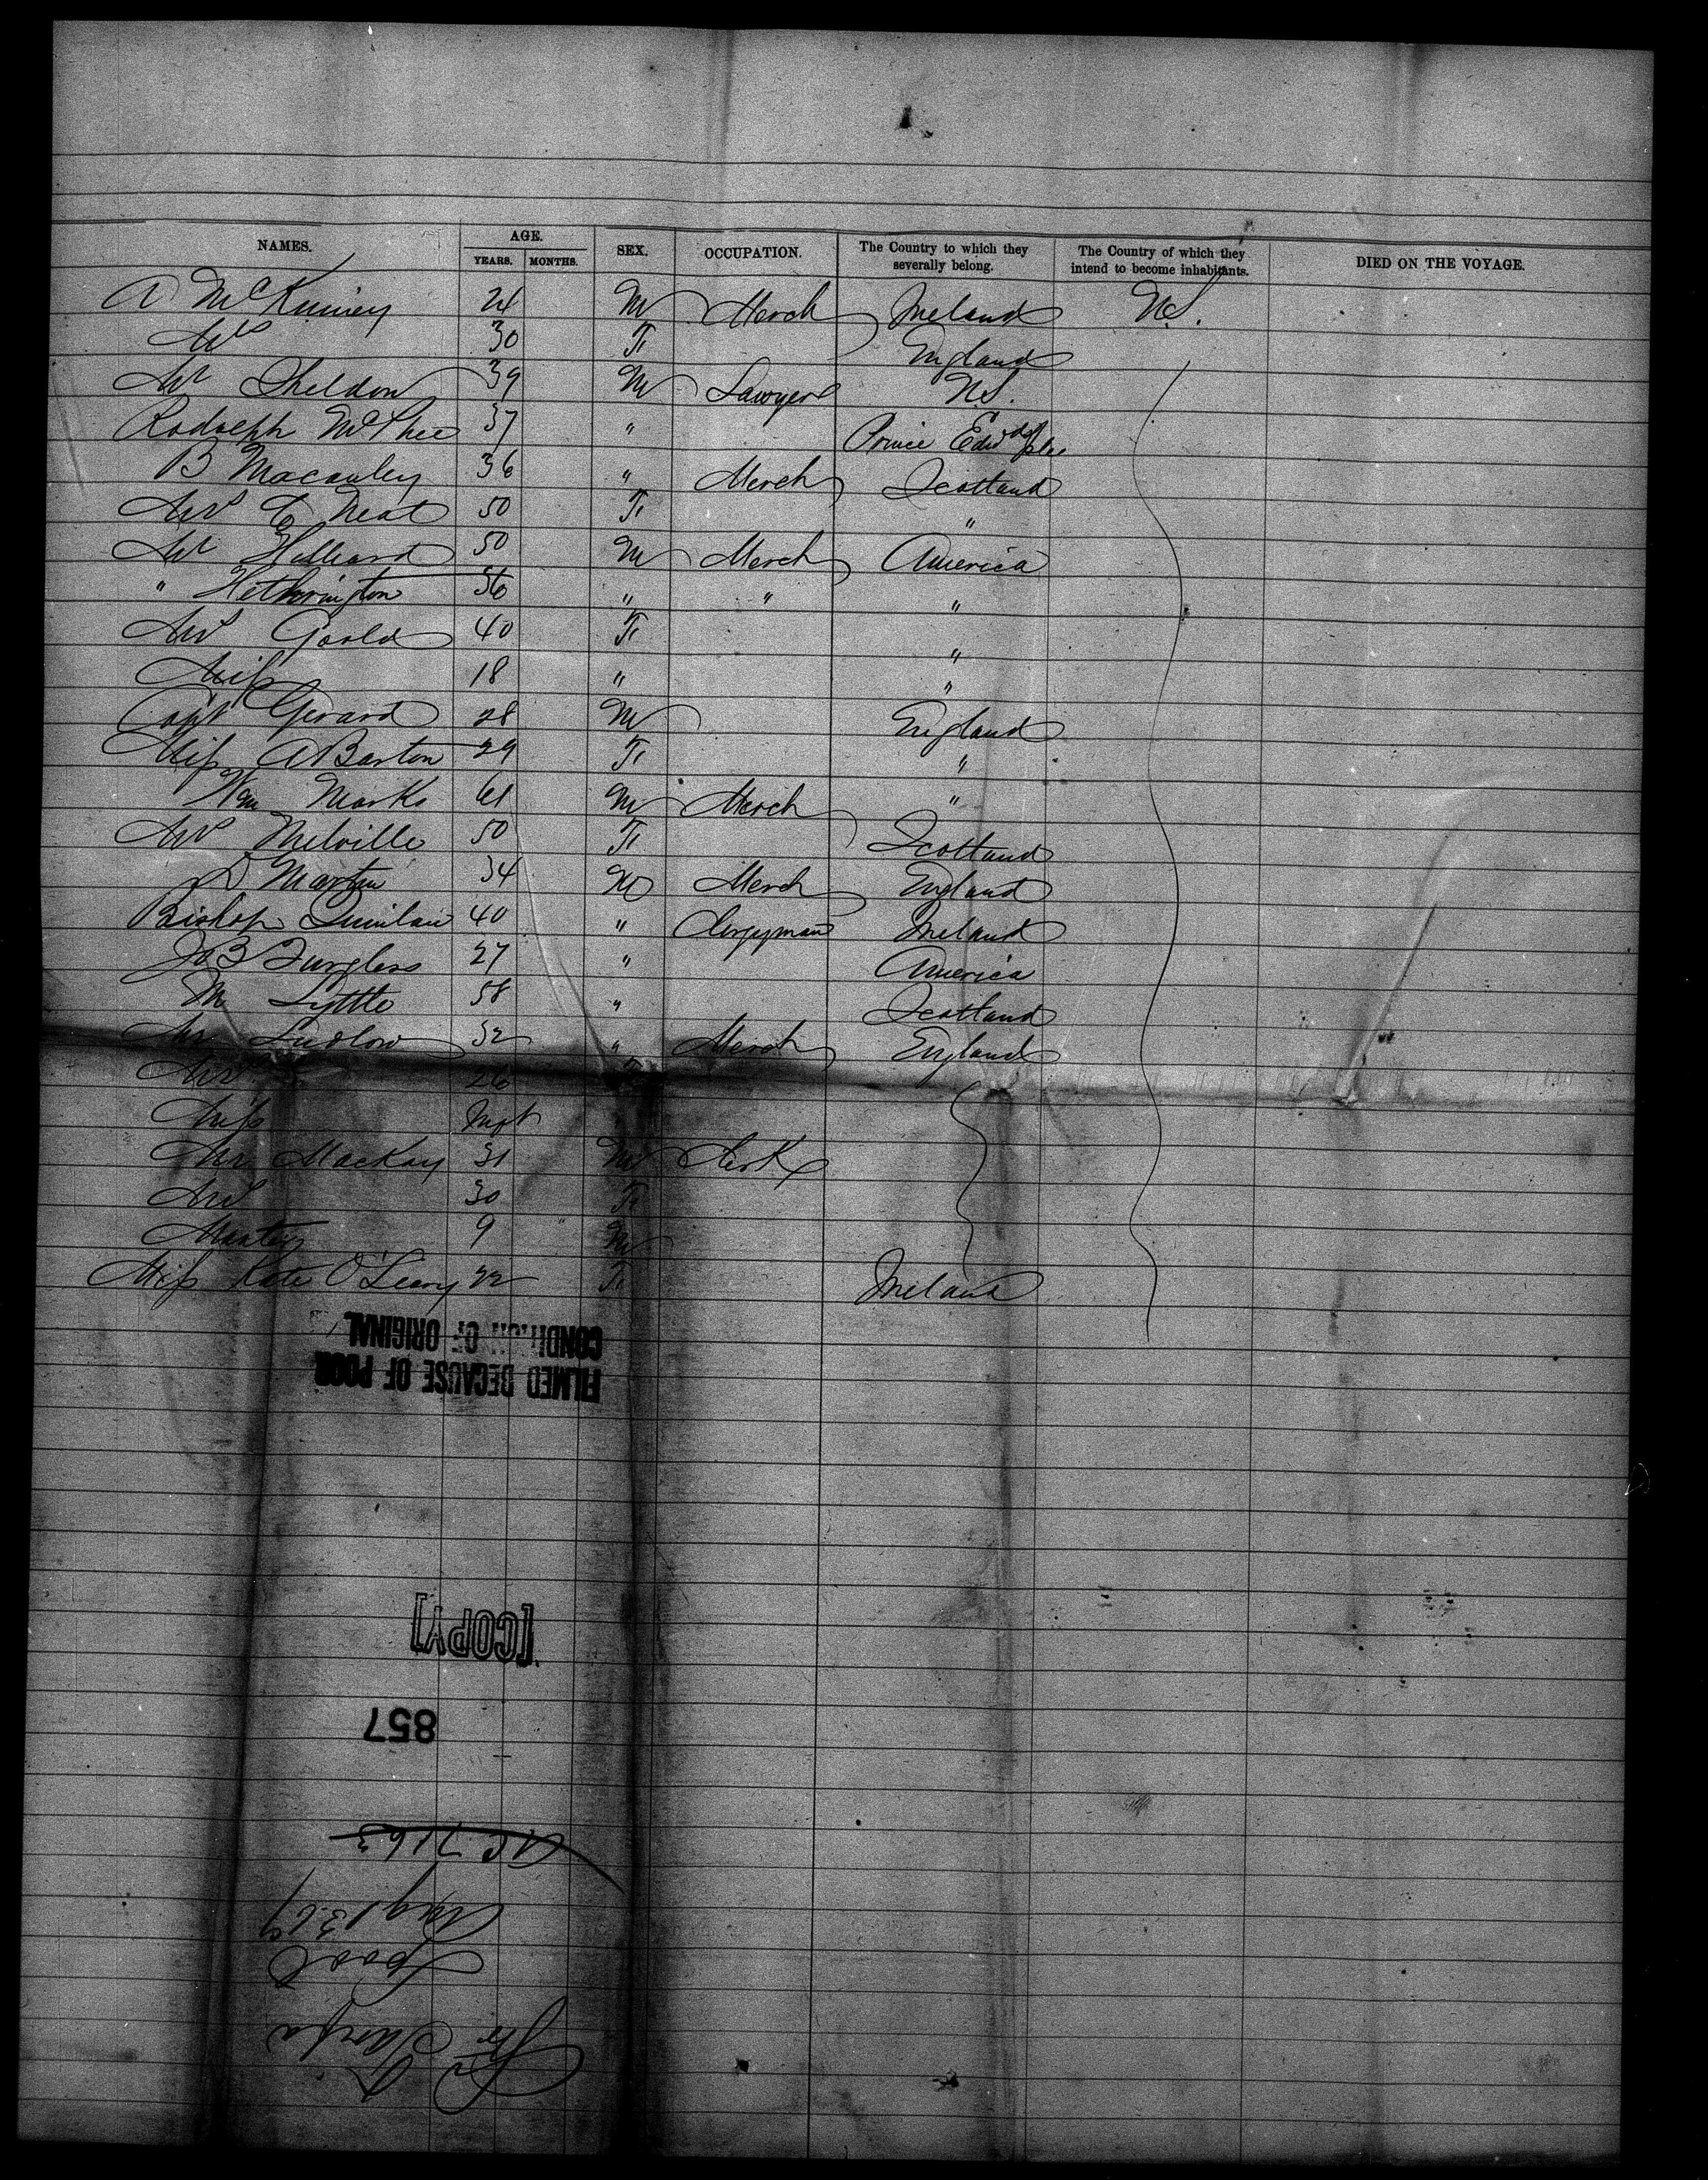 NAMES. AGE. YEARS. MONTHS. SEX. OCCUPATION. The Country to which they severally belong. The Country of which they intend to become inhabitants. DIED ON THE VOYAGE.
A McKinney 24 M Merch Ireland U.S.
Mrs 30 F England
Mr Sheldon 39 M Lawyer U.S.
Rodolph McPhee 37 " Prince Edwds
B Macauley 36 " Merch Scotland
Mrs C Neat 50 F "
Mr Hilliard 50 M Merch America
" Hetherington 36 " " "
Mrs Goold 40 F "
Miss 18 " "
Capt Gerard 28 M England
Miss A Barton 29 F "
Wm Marks 61 M Merch "
Mrs Melville 50 F Scotland
D Martin 34 M Merch England
Bishop Quinlan 40 " Clergyman Ireland
27 " America
M Lyttle 58 " Scotland
Mr Ludlow 32 " Merch England
Mrs 26 F
Miss Inft "
Mr Mackay 31 M Clerk
Mrs 30 F
Master 9 M
Miss Kate O'Leary 22 F Ireland
FILMED BECAUSE OF POOR
CONDITION OF ORIGINAL
[COPY]
857
Str Tarifa
Lpool
Aug 13. 67